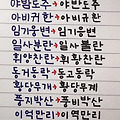 야밤도주→야반도주
아비귀환→아비규환
임기웅변→임기응변
일사분란→일사불란
휘양찬란→휘황찬란
동거동락→동고동락
황당무개→황당무계
풍지박산→풍비박산
이역만리→이역만리